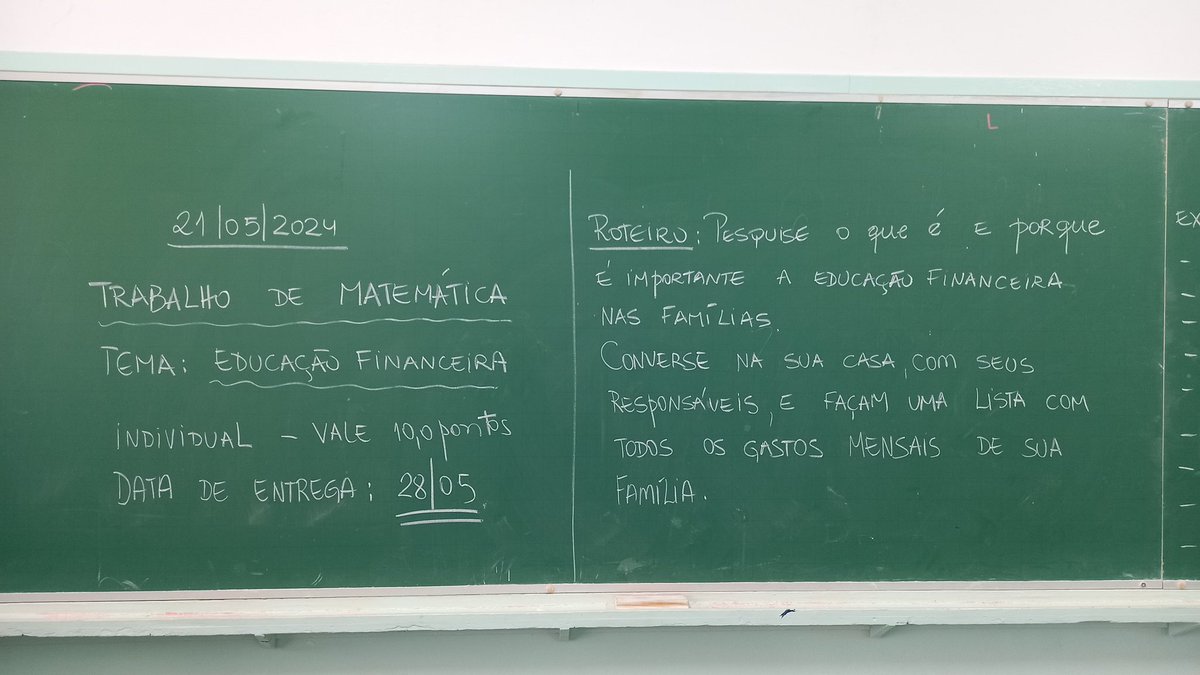 21/05/2024
TRABALHO DE MATEMÁTICA
TEMA: EDUCAÇÃO FINANCEIRA
INDIVIDUAL – VALE 10,0 pontos
DATA DE ENTREGA: 28/05
ROTEIRO: PESQUISE o que é E porque
É IMPORTANTE A EDUCAÇÃO FINANCEIRA
NAS FAMÍLIAS.
CONVERSE NA SUA CASA, COM SEUS
RESPONSÁVEIS, E FAÇAM UMA LISTA COM
TODOS OS GASTOS MENSAIS DE SUA
FAMÍLIA.
L